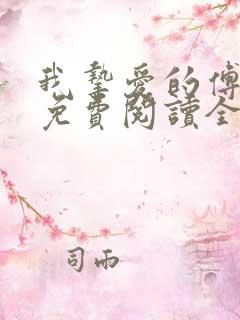 我摯愛的傅
免費閱讀全
司雨